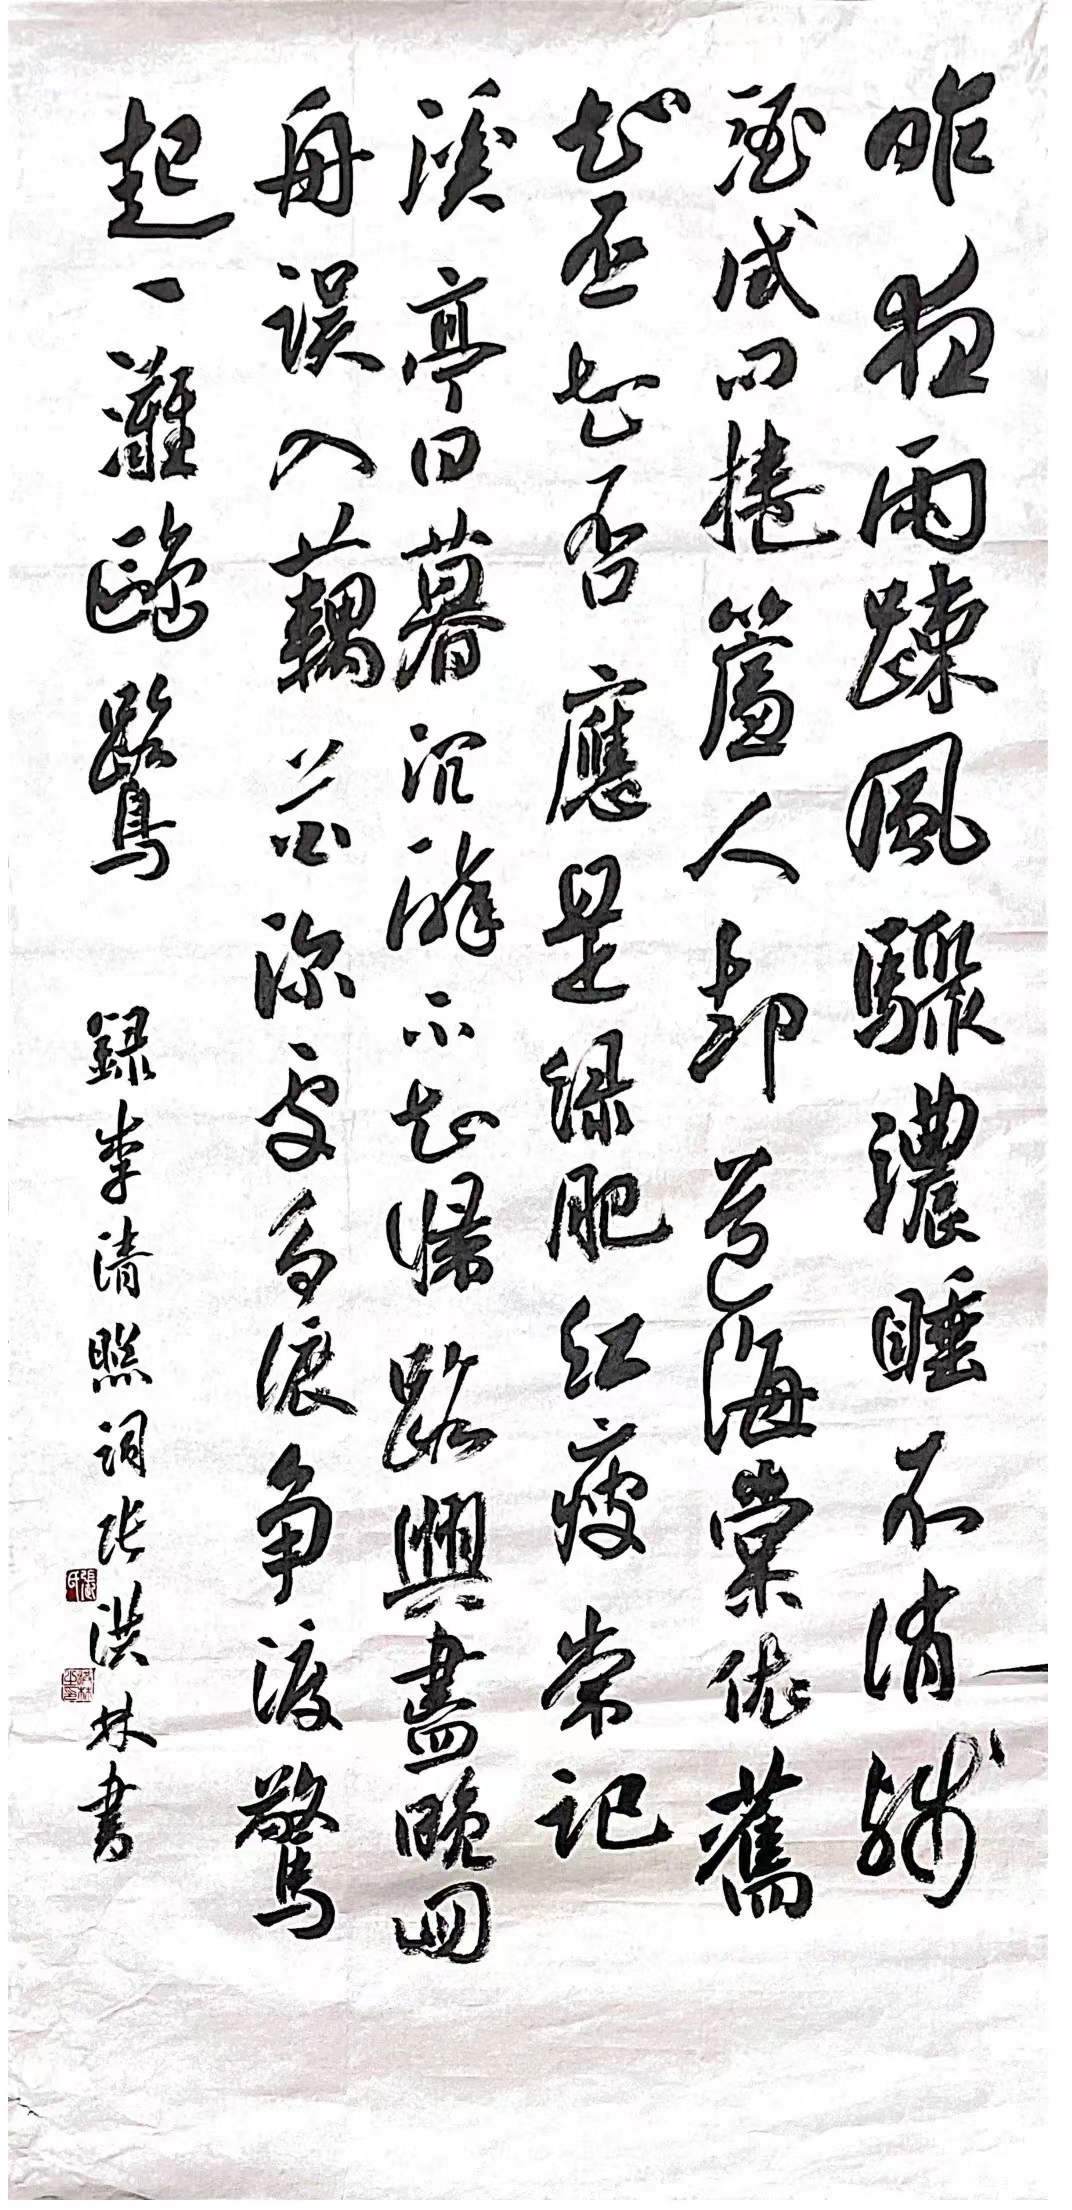 昨夜雨踈風驟濃睡不消殘
酒試问捲簾人却道海棠依舊
知否知否應是绿肥红瘦常记
溪亭日暮沉醉不知歸路興盡晚囬
舟误入藕花深处争渡争渡驚
起一灘鷗鷺 録李清照词张洪林書
張氏